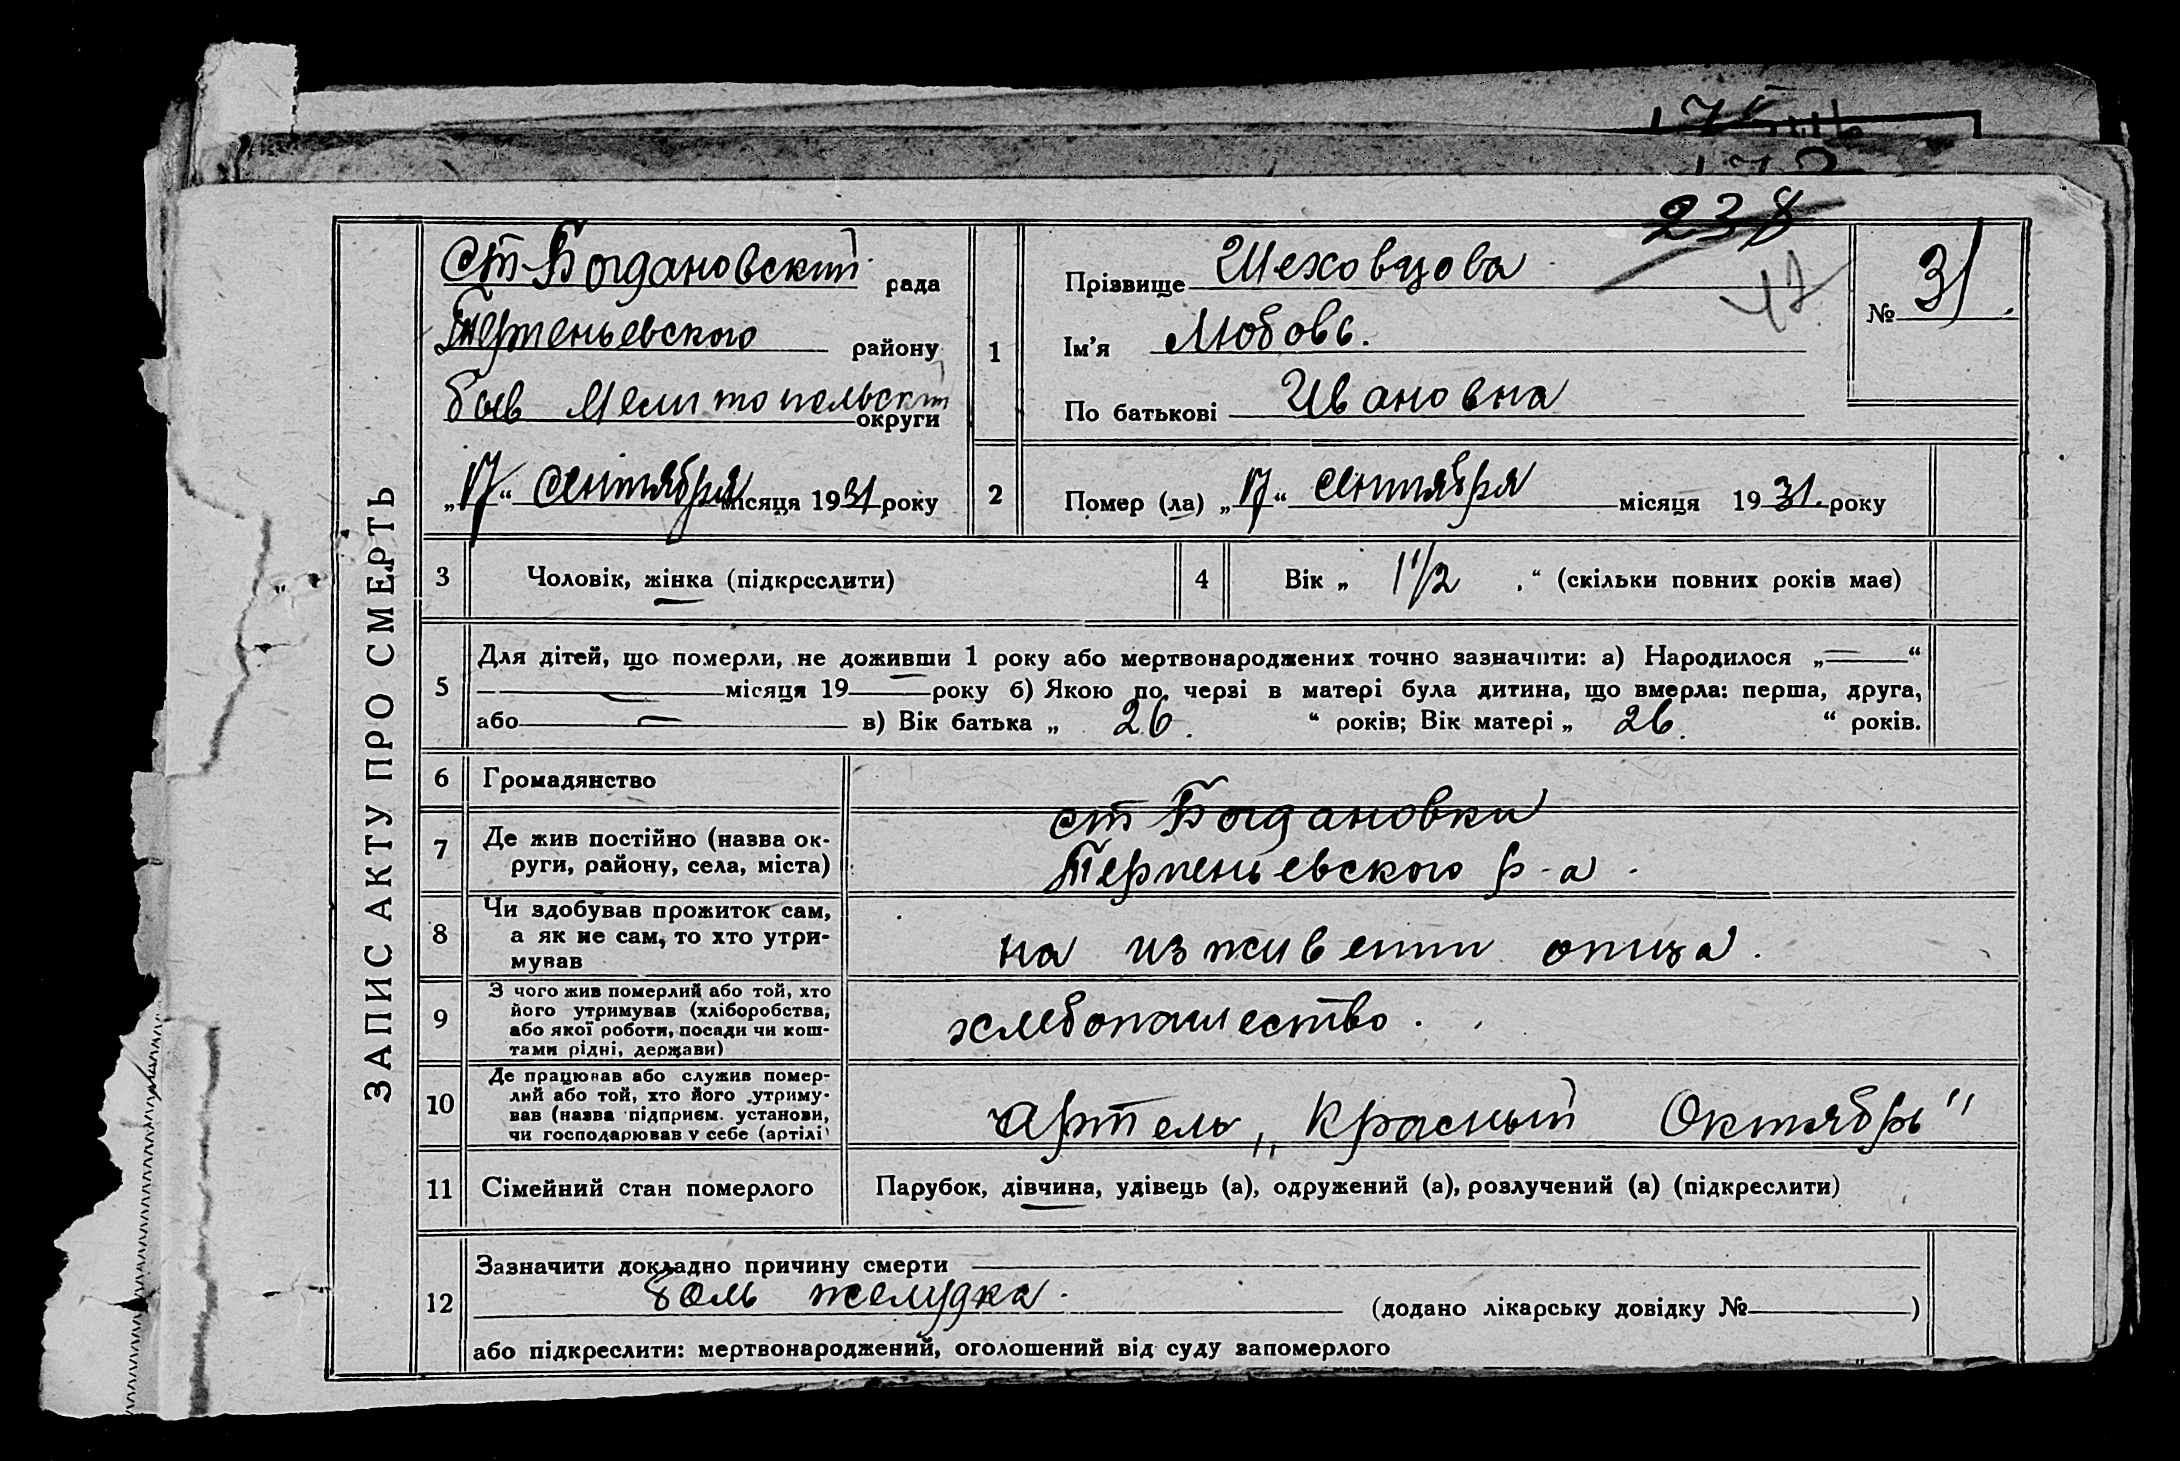 238
47
ЗАПИС АКТУ ПРО СМЕРТЬ
Ст-Богдановский рада
Терпеньевского району
быв Мелитопольский округи
„17“ сентября місяця 1931 року
1
Прізвище Шеховцова
Ім'я Любовь.
По батькові Ивановна
№ 31.
2 Помер (ла) „17“ сентября місяця 1931. року
3 Чоловік, жінка (підкреслити)
4 Вік „ 1 1/2 “ (скільки повних років має)
5 Для дітей, що померли, не доживши 1 року або мертвонароджених точно зазначити: а) Народилося „—“
— місяця 19— року б) Якою по черзі в матері була дитина, що вмерла: перша, друга,
або — в) Вік батька „ 26. “ років; Вік матері „ 26. “ років.
6 Громадянство
7 Де жив постійно (назва ок-
руги, району, села, міста)
ст Богдановки
Терпеньевского р-а.
8 Чи здобував прожиток сам,
а як не сам, то хто утри-
мував
на изживении отца.
9 З чого жив померлий або той, хто
його утримував (хліборобства,
або якої роботи, посади чи кош-
тами рідні, держави)
хлебопашество.
10 Де працював або служив помер-
лий або той, хто його утриму-
вав (назва підприєм. установи,
чи господарював у себе (артілі)
Артель „Красный Октябрь"
11 Сімейний стан померлого
Парубок, дівчина, удівець (а), одружений (а), розлучений (а) (підкреслити)
12 Зазначити докладно причину смерти
боль желудка.
(додано лікарську довідку №—)
або підкреслити: мертвонароджений, оголошений від суду запомерлого